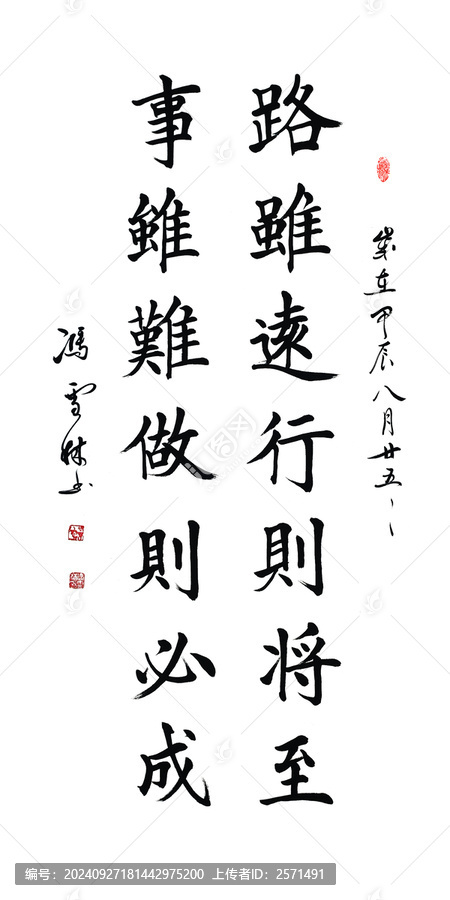 歲在甲辰八月廿五
路雖遠行則将至
事雖難做則必成
馮雪林书
编号：20240927181442975200 上传者ID：2571491